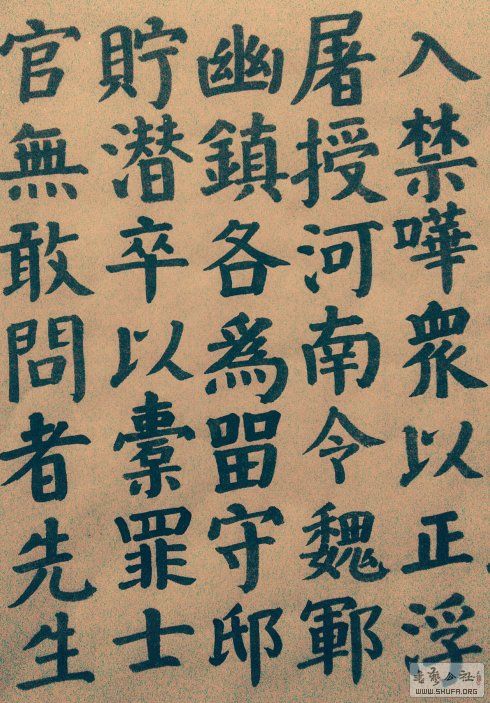 入禁嘩衆以正浮
屠授河南令魏鄆
幽鎮各爲留守邸
貯潜卒以橐罪士
官無敢問者先生
書藝公社
WWW.SHUFA.ORG